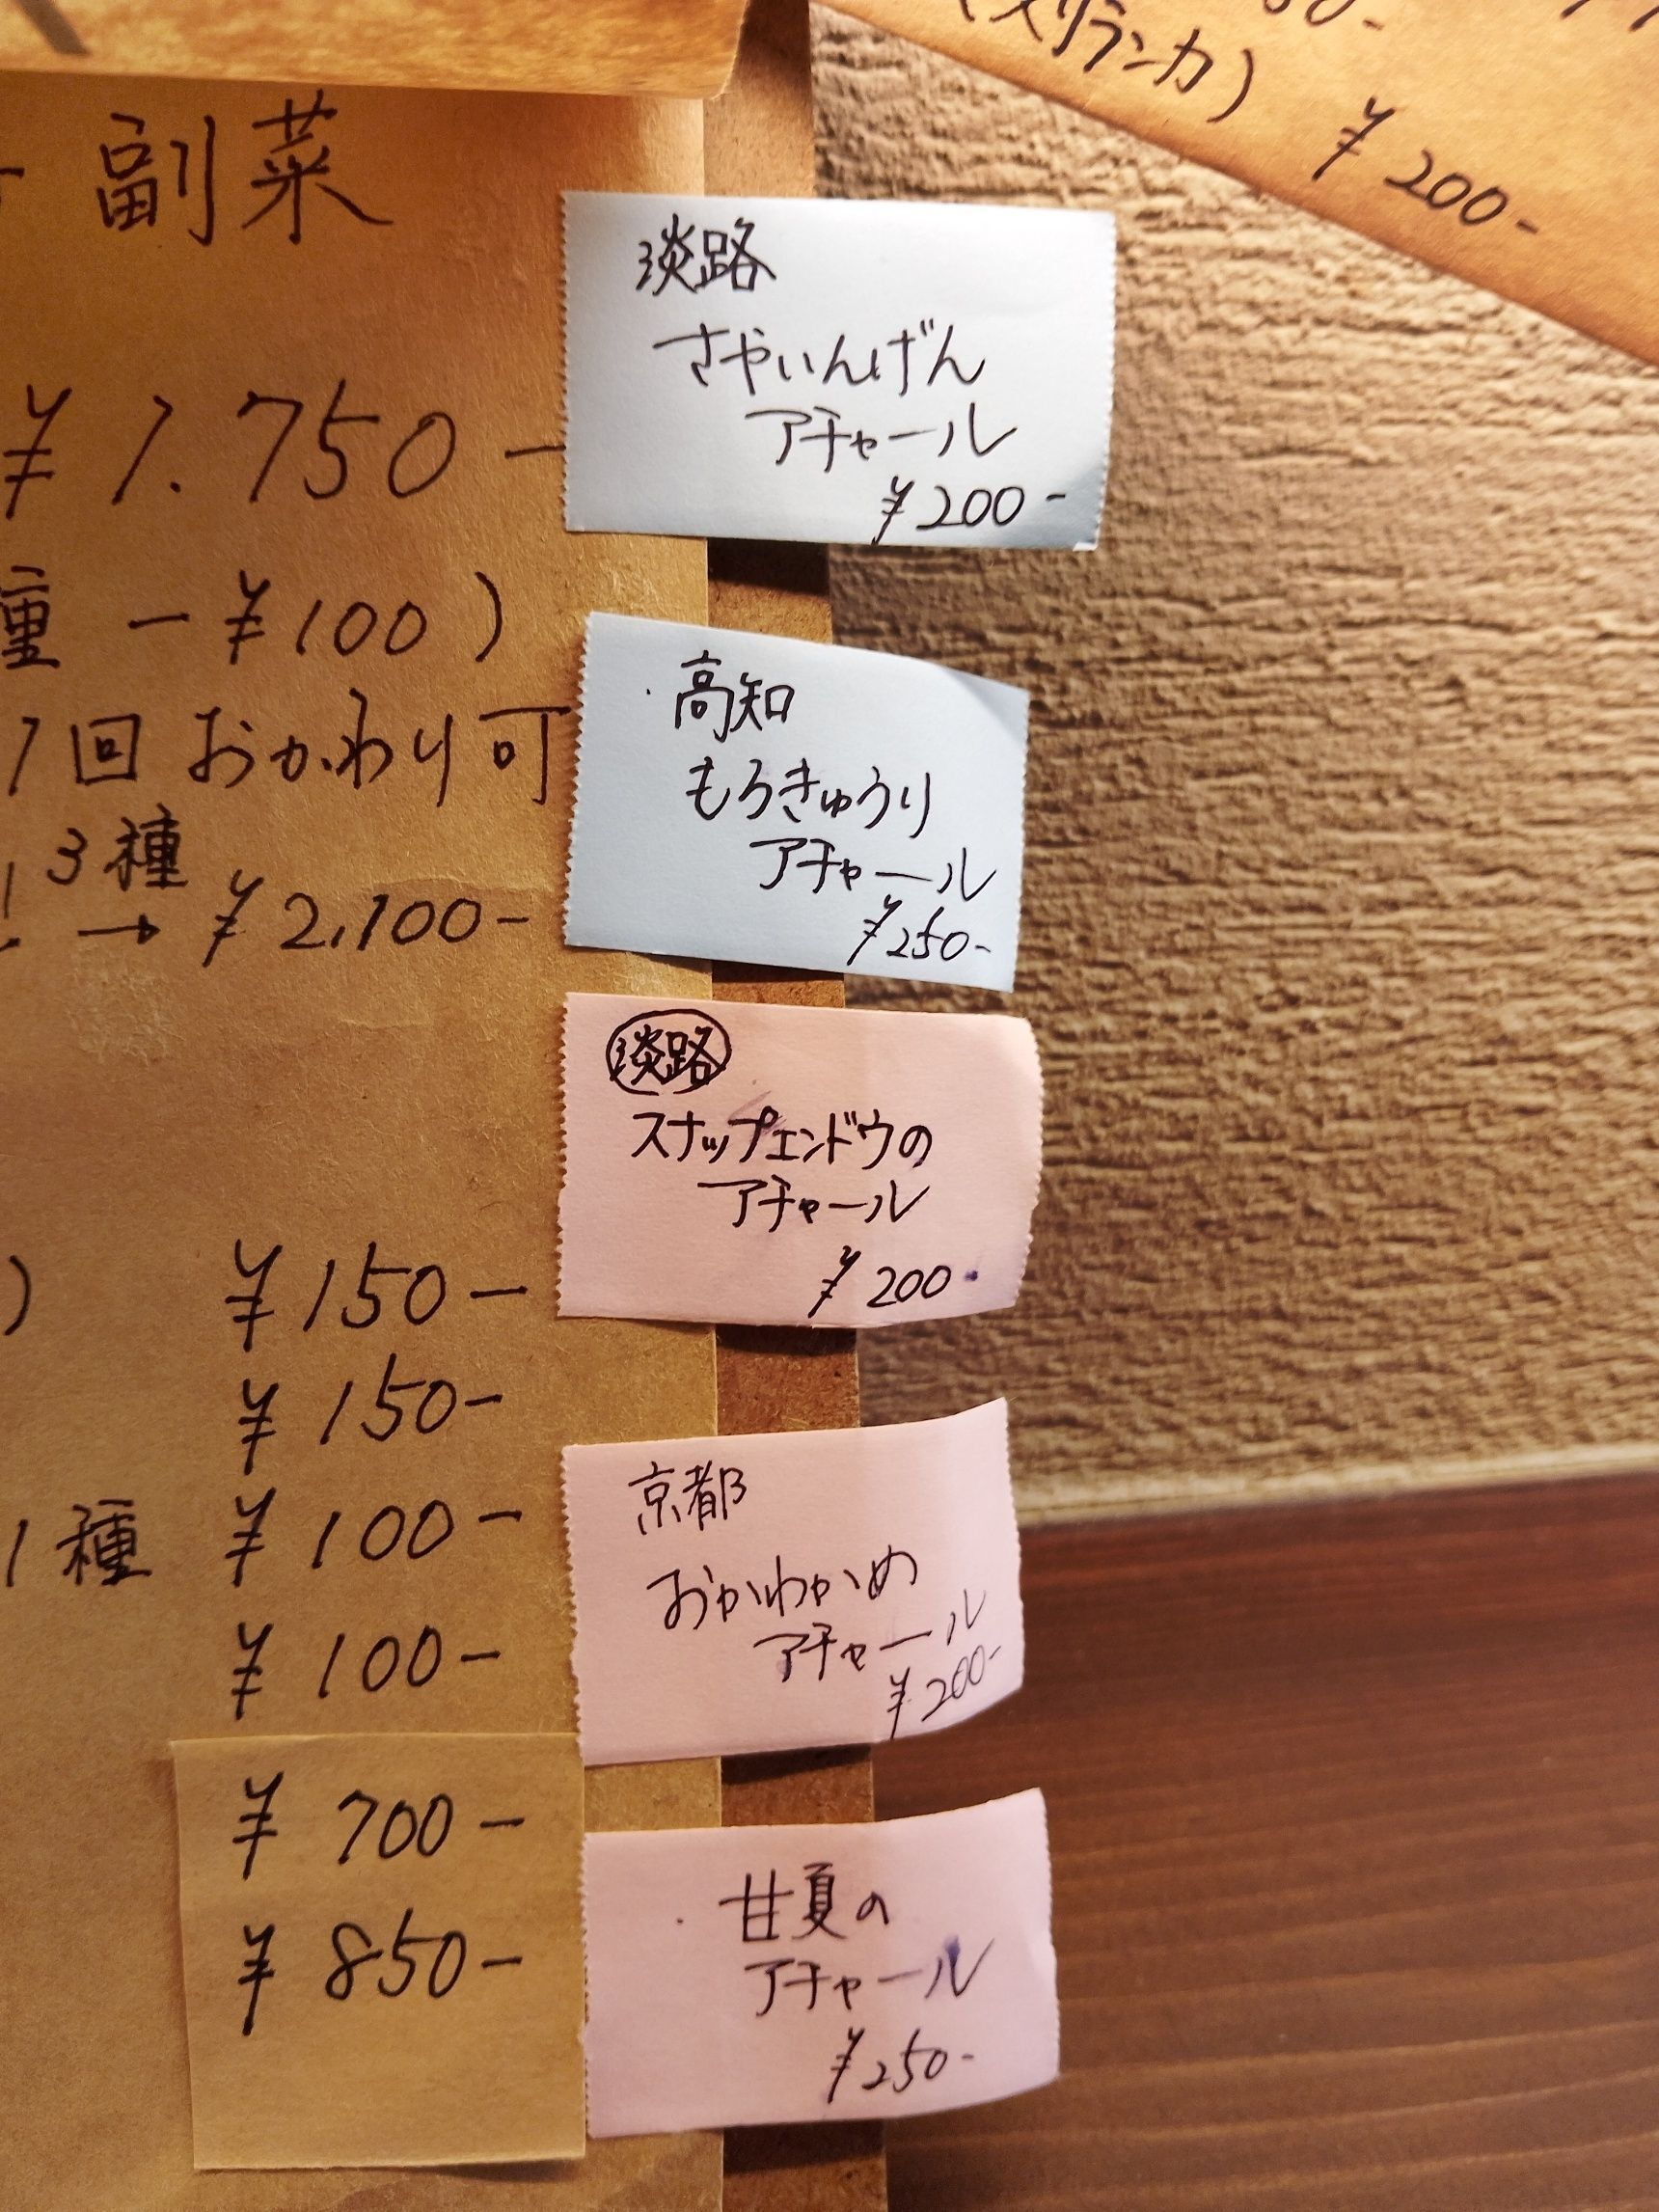 副菜
¥1.750-
種 -¥100)
1回おかわり可
3種
! → ¥2,100-
) ¥150-
¥150-
1種 ¥100-
¥100-
¥700-
¥850-
淡路
さやいんげん
アチャール
¥200-
・高知
もろきゅうり
アチャール
¥250-
淡路
スナップエンドウの
アチャール
¥200-
京都
おかわかめ
アチャール
¥200-
・甘夏の
アチャール
¥250-
(スリランカ)
¥200-